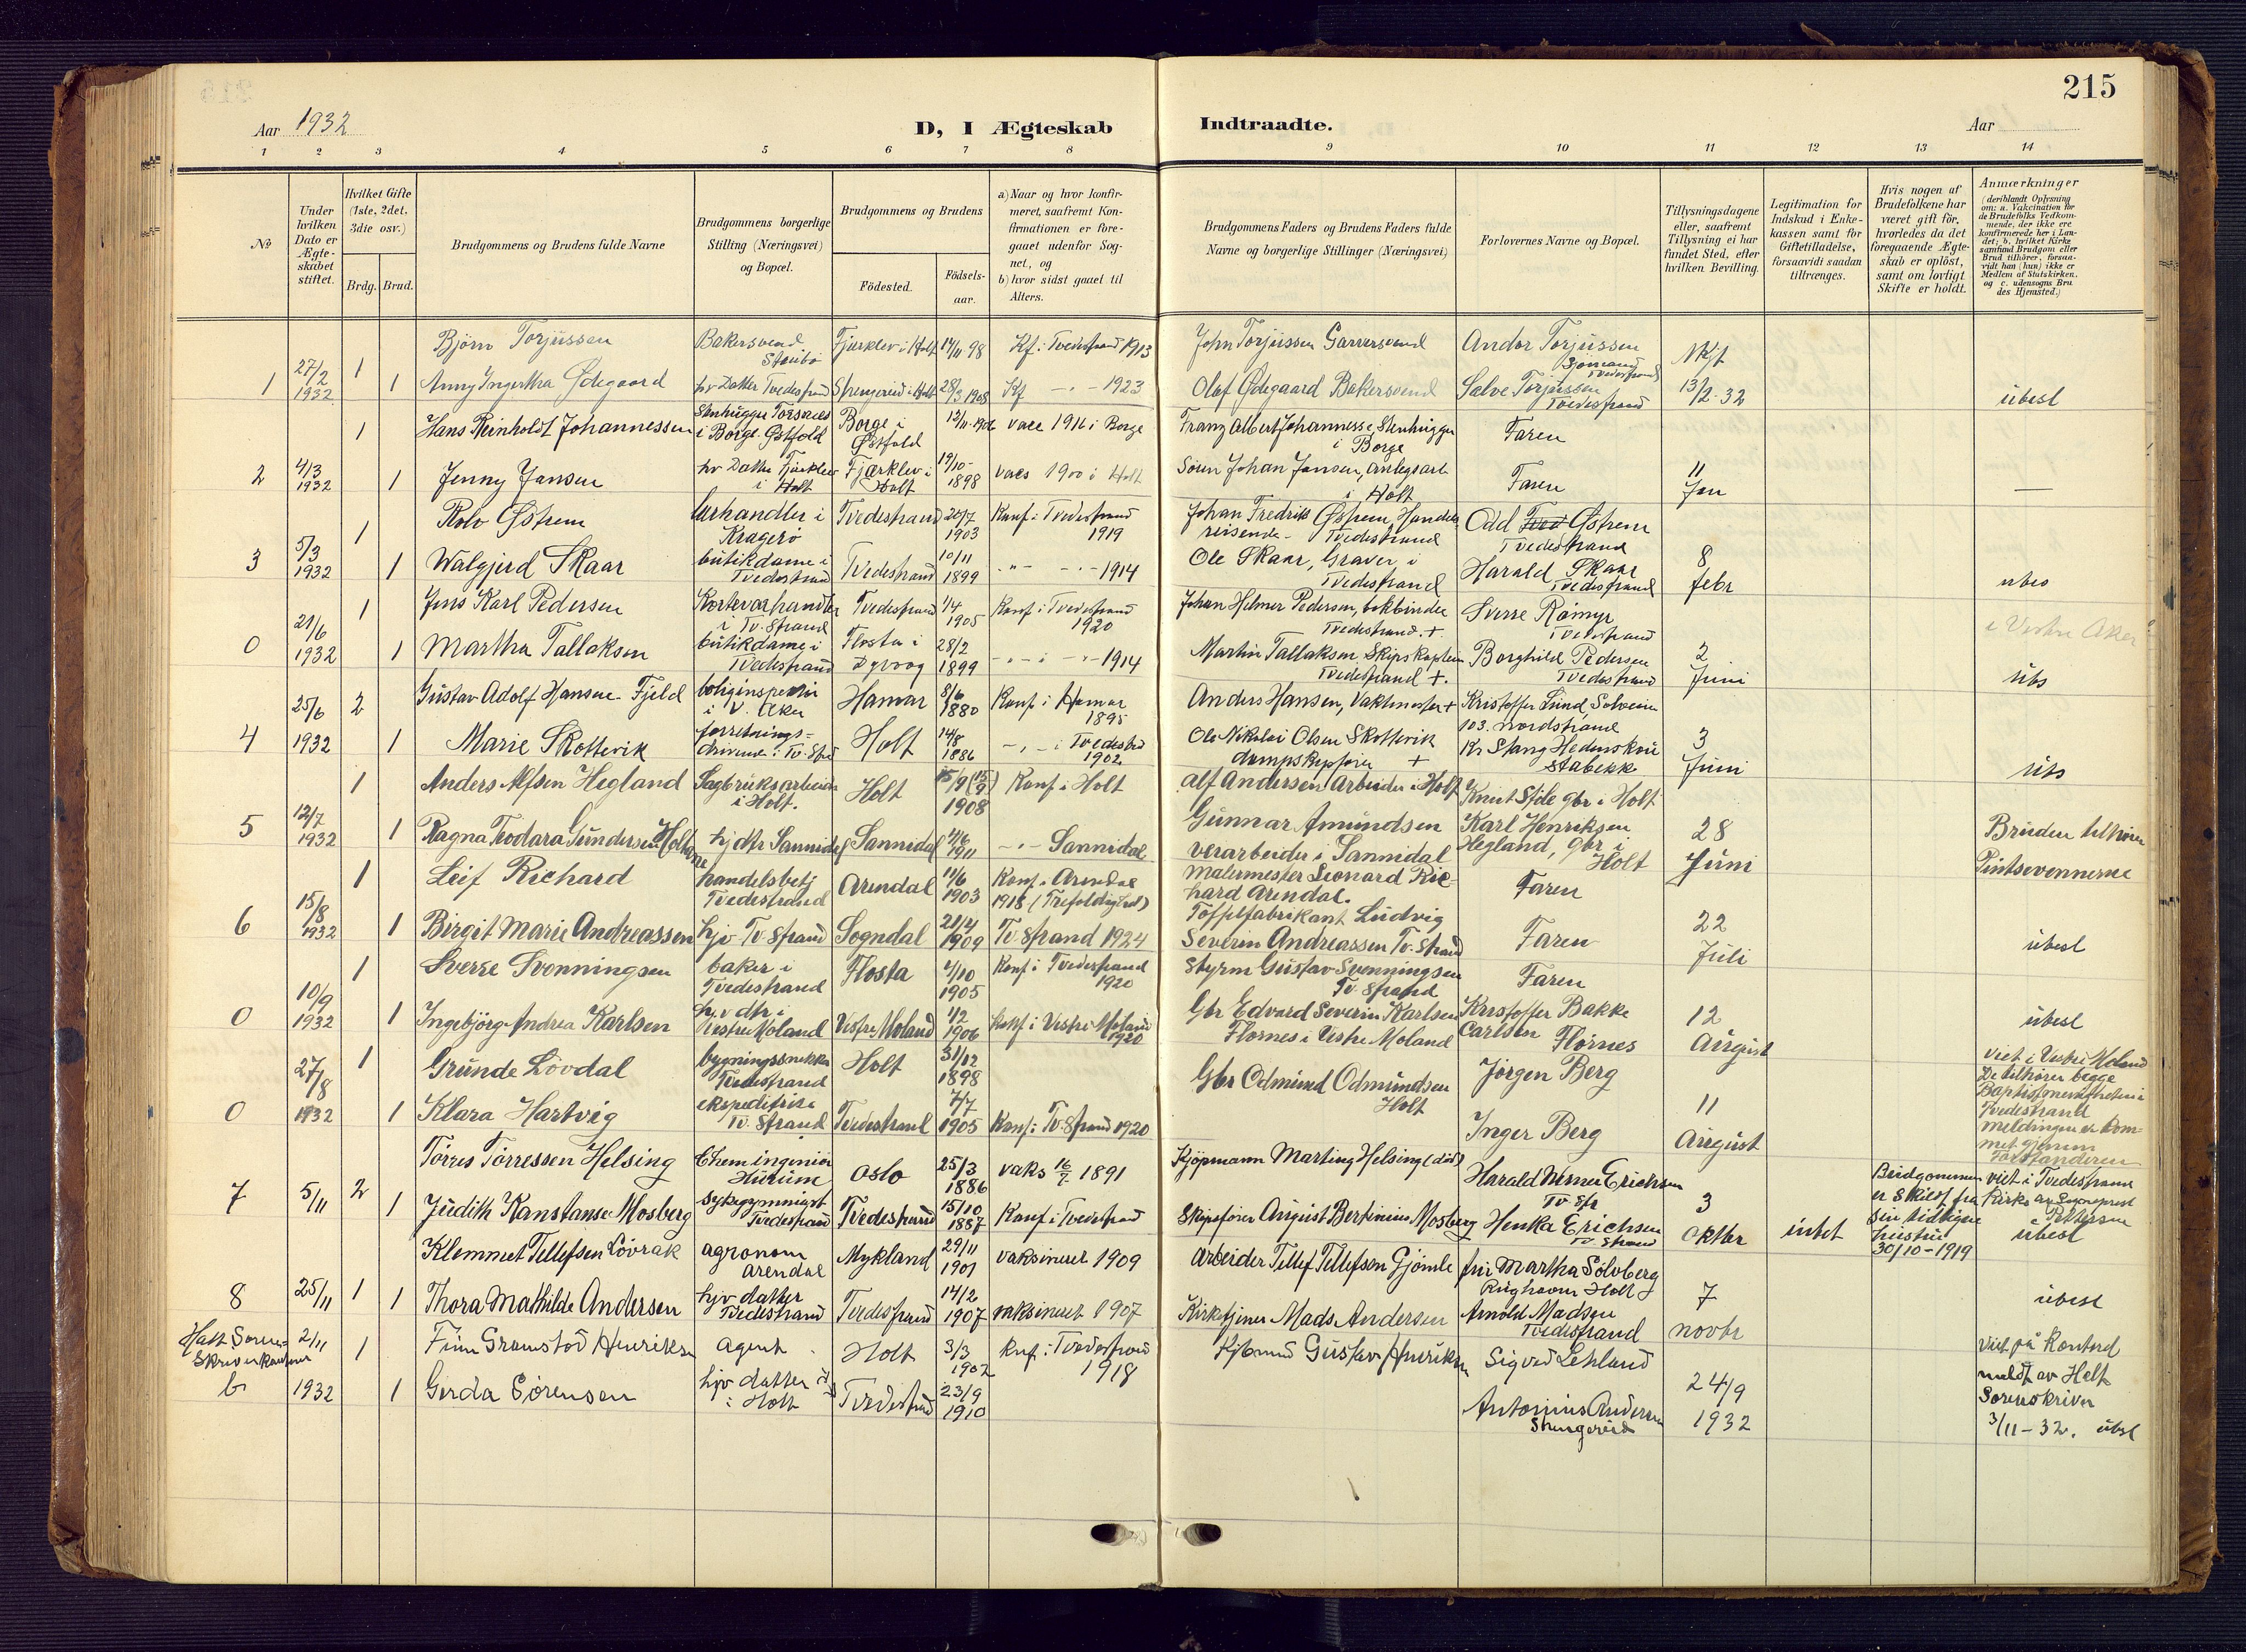 215
Aar 1932
D, I Ægteskab
Indtraadte.
Aar
1 2 3 4 5 6 7 8 9 10 11 12 13 14
No
Under hvilken Dato er Ægteskabet stiftet.
Hvilket Gifte (1ste, 2det, 3die osv.)
Brdg. Brud.
Brudgommens og Brudens fulde Navne
Brudgommens borgerlige Stilling (Næringsvei) og Bopæl.
Brudgommens og Brudens
Födested.
Födselsaar.
a) Naar og hvor konfirmeret, saafremt Konfirmationen er foregaaet udenfor Sognet, og
b) hvor sidst gaaet til Alters.
Brudgommens Faders og Brudens Faders fulde Navne og borgerlige Stillinger (Næringsvei)
Forlovernes Navne og Bopæl.
Tillysningsdagene eller, saafremt Tillysning ei har fundet Sted, efter hvilken Bevilling.
Legitimation for Indskud i Enkekassen samt for Giftetilladelse, forsaavidt saadan tiltrænges.
Hvis nogen af Brudefolkene har været gift för, hvorledes da det foregaaende Ægteskab er oplöst, samt om lovligt Skifte er holdt.
Anmærkninger (deriblandt Oplysning om: a. Vakcination for de Brudefolks Vedkommende, der ikke ere konfirmerede her i Landet; b. hvilket Kirkesamfund Brudgom eller Brud tilhörer, forsaavidt han (hun) ikke er Medlem af Statskirken, og c. udensogns Brudes Hjemsted.)
1 27/2 1932 1 Björn Torjussen Bakersvend Fjærklev i Holt 14/11 98 Kf. i Tvedestrand 1913 John Torjussen Garversvend Andor Torjussen Sjömand Tvedestrand
1 Anny Ingertha Ödegaard hv Datter Tvedestrand 28/3 1908 Kf -"- 1923 Olaf Ödegaard Bakersvend Salve Torjussen, Tvedestrand 13/2-32 übest
1 Hans Reinholdt Johannessen Stenhugger i Borge Östfold Borge i Östfold vacc 1916 i Borge Franz Albert Johannesse, Stenhugger i Borge Faren
2 4/3 1932 1 Jenny Jansen hv Datter Fjærklev i Holt Fjærklev i Holt 19/10-1898 vacs 1900 i Holt Sören Johan Jansen, anlegsarb i Holt Faren 11 Jan —
1 Rolv Östrem i Kragerö Tvedestrand 20/7 1903 Konf. i Tvedestrand 1919 Johan Fredrik Östrem, Handelsreisende - Tvedestrand Odd Östrem Tvedestrand
3 5/3 1932 1 Walgjerd Skaar butikdame i Tvedestrand Tvedestrand 10/11 1899 -"- -"- 1914 Ole Skaar, Graver i Tvedestrand Harald Skaar Tvedestrand 8 febr ubes
1 Jens Karl Pedersen i Tv. strand Tvedestrand 1/4 1905 Konf i Tvedestrand 1920 Johan Helmer Pedersen, bokbinder Tvedestrand. + Sverre Råmyr Tvedestrand i Vestre Aker
0 21/6 1932 1 Martha Tallaksen butikdame i Tvedestrand Flosta i Dybvåg 28/2 1899 -"- i -"- 1914 Martin Tallaksen Skipskaptein Tvedestrand +. Borghild Pedersen Tvedestrand 2 Juni übs
25/6 2 Gustav Adolf Hansen-Fjeld boliginspektör i V. Aker Hamar 8/6 1880 Konf. i Hamar 1895 Anders Hansen, Vaktmester + Kristoffer Lund, Solveien 103. Nordstrand
4 1932 1 Marie Skottevik forretningsdrivende i Tv. Str Holt 14/8 1886 -"- i Tvedestrd 1902 Ole Nikolai Olsen Skottevik dampskipförer + Kr Stang Hedenskou Stabekk 3 Juni übs
1 Anders Alfsen Hegland Sagbruksarbeider i Holt. Holt 1908 Konf. i Holt Alf Andersen Arbeider i Holt Knut Stifle gbr i Holt
5 12/7 1932 1 Ragna Teodara Gundersen Holtane hjdtr Sannidal Sannidal 4/6 1911 -"- Sannidal Gunnar Amundsen verarbeider i Sannidal Karl Henriksen, Hegland, gbr i Holt 28 Juni Bruden tilhörer Pintsevennerne
1 Leif Richard handelsbetj Tvedestrand Arendal 11/6 1903 Konf. i Arendal 1918 (Trefoldighed) Malermester Leonard Richard Arendal. Faren
6 15/8 1932 1 Birgit Marie Andreassen hjv Tv. strand Sogndal 21/4 1909 Tv. strand 1924 Töffelfabrikant Ludvig Severin Andreassen Tv. strand Faren 22 Juli übest
1 Sverre Svenningsen baker i Tvedestrand Flosta 4/10 1905 Konf i Tvedestrand 1920 Styrm Gustav Svenningsen Tv. strand Faren
0 10/9 1932 1 Ingebjörg Andrea Karlsen hjv dtr i Vestre Moland Vestre Moland 1/2 1906 Konf i Vestre Moland 1920 Gbr Edvard Severin Karlsen Flörnes i Vestre Moland Kristoffer Bakke Carlsen Flörnes 12 August übest
27/8 1 Grunde Lövdal bygningssnekker Tvedestrand Holt 31/12 1898 Gbr Odmund Odmundsen Holt Jörgen Berg viet i Vestre Moland
0 1932 1 Klara Hartvig ekspeditrise Tv. strand Tvedestrand 7/7 1905 Konf. i Tv. Strand 1920 Inger Berg 11 August De tilhörer begge Baptistmenigheten i Tvedestrand meldingen er kommet gjennem Forstanderen
Törres Törressen Helsing Chem ingeniör Hurum Oslo 25/3 1886 vaks 16/7 1891 Kjöpmann Martin Helsing (död) Harald Werner Erichsen Tv. str
7 5/11 2 1 Judith Konstanse Mosberg Tvedestrand Tvedestrand 15/10 1887 Konf i Tvedestrand Skipsförer August Bertinius Mosberg Henka Erichsen Tv. strand 3 oktbr intet Brudgommen er skilt fra sin tidligere hustru 30/10-1919 viet i Tvedestrand Kirke av Sogneprest Pettersen übest
Klemmet Tellefsen Lövrak agronom Arendal Mykland 29/11 1901 vaksineret 1909 Arbeider Tellef Tellefsen Gjömle fru Martha Sölvberg Holt
8 25/11 1 1 Thora Mathilde Andersen hjv datter Tvedestrand Tvedestrand 14/2 1907 vaksineret 1907 Kirketjener Mads Andersen Arnold Madsen Tvedestrand 7 novbr übest
Holt Sorenskriverkontor 2/11 1 Finn Gramstad Henriksen agent Holt 3/3 1902 Knf. i Tvedestrand 1918 Kjöbmand Gustav Henriksen Sigved Lehland viet på kontord
b 1932 1 Gerda Sörensen hjv datter i Holt Tvedestrand 23/9 1910 Antonius Andersen Strengereid 24/9 1932 meldt av Holt Sorenskriver 3/11-32. übst